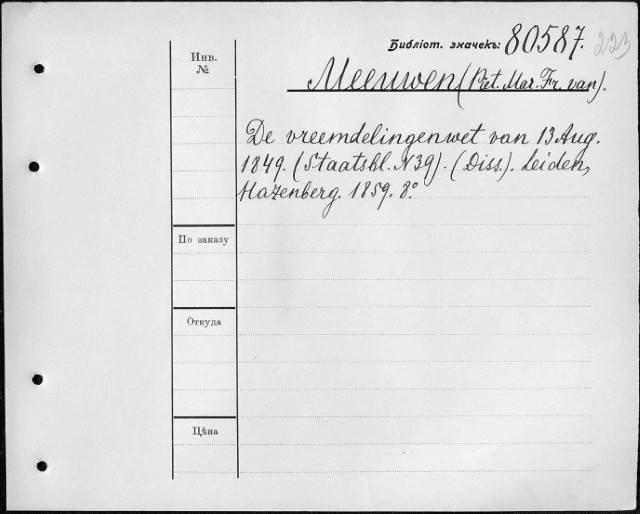 Библіот. значекъ: 80587. 223
Инв.
№
Meeuwen (Piet. Mar. Fr. van).
De vreemdelingenwet van 13 Aug.
1849. (Staatsbl. N 39). (Diss.). Leiden,
Hazenberg. 1859. 8º.
По заказу
Откуда
Цѣна